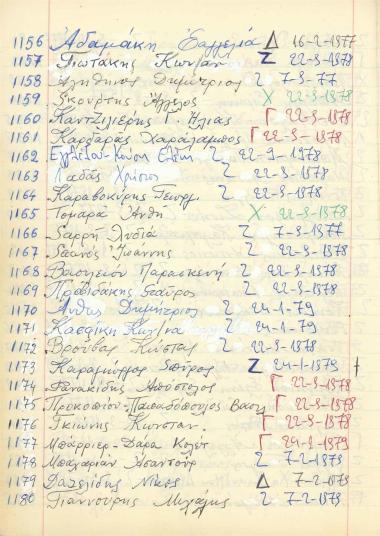 1156 Αδαμάκη Ευαγγελία Δ 16-2-1977
1157 Γιωτάκης Κων/αν Ζ 22-9-1978
1158 Αληθηνός Δημήτριος Ζ 7-9-77
1159 Σκούρτης Άγγελος Χ 22-9-1978
1160 Καντζιλιέρης Γ. Ηλίας Γ 22-9-1978
1161 Καρδαράς Χαράλαμπος Γ 22-9-1978
1162 Ελένη Ζ 22-9-1978
1163 Λαδάς Χρίστος Ζ 22-9-1978
1164 Καραβοκύρης Γεωργ. Ζ 22-9-1978
1165 Τομαρά Ανθή Χ 22-9-1978
1166 Σαρρή Λυδία Ζ 7-9-1977
1167 Ιωάννης Ζ 22-9-1978
1168 Βασιλείου Παρασκευή Ζ 22-9-1978
1169 Πραβιδάκης Σταύρος Ζ 22-9-1978
1170 Δημήτριος Ζ 24-1-79
1171 Κασφίκη Κων/να Ζ 24-1-79
1172 Βρούβας Κώστας Ζ 22-9-1978
1173 Σπύρος Ζ 24-1-1979
1174 Φανακίδης Απόστολος Γ 22-9-1978
1175 Προκοπίου-Παπαδόπουλος Βασιλ. Γ 22-9-1978
1176 Γκιώνης Κωνσταν. Γ 22-9-1978
1177 Μπερριέρ-Δάρα Κολέτ Γ 24-9-1979
1178 Μπαχαριάν Ασαντούρ Ζ 7-2-1979
1179 Δατσελίδης Νίκος Δ 7-2-1979
1180 Γιαννούρης Μιχάλης Ζ 7-2-1979